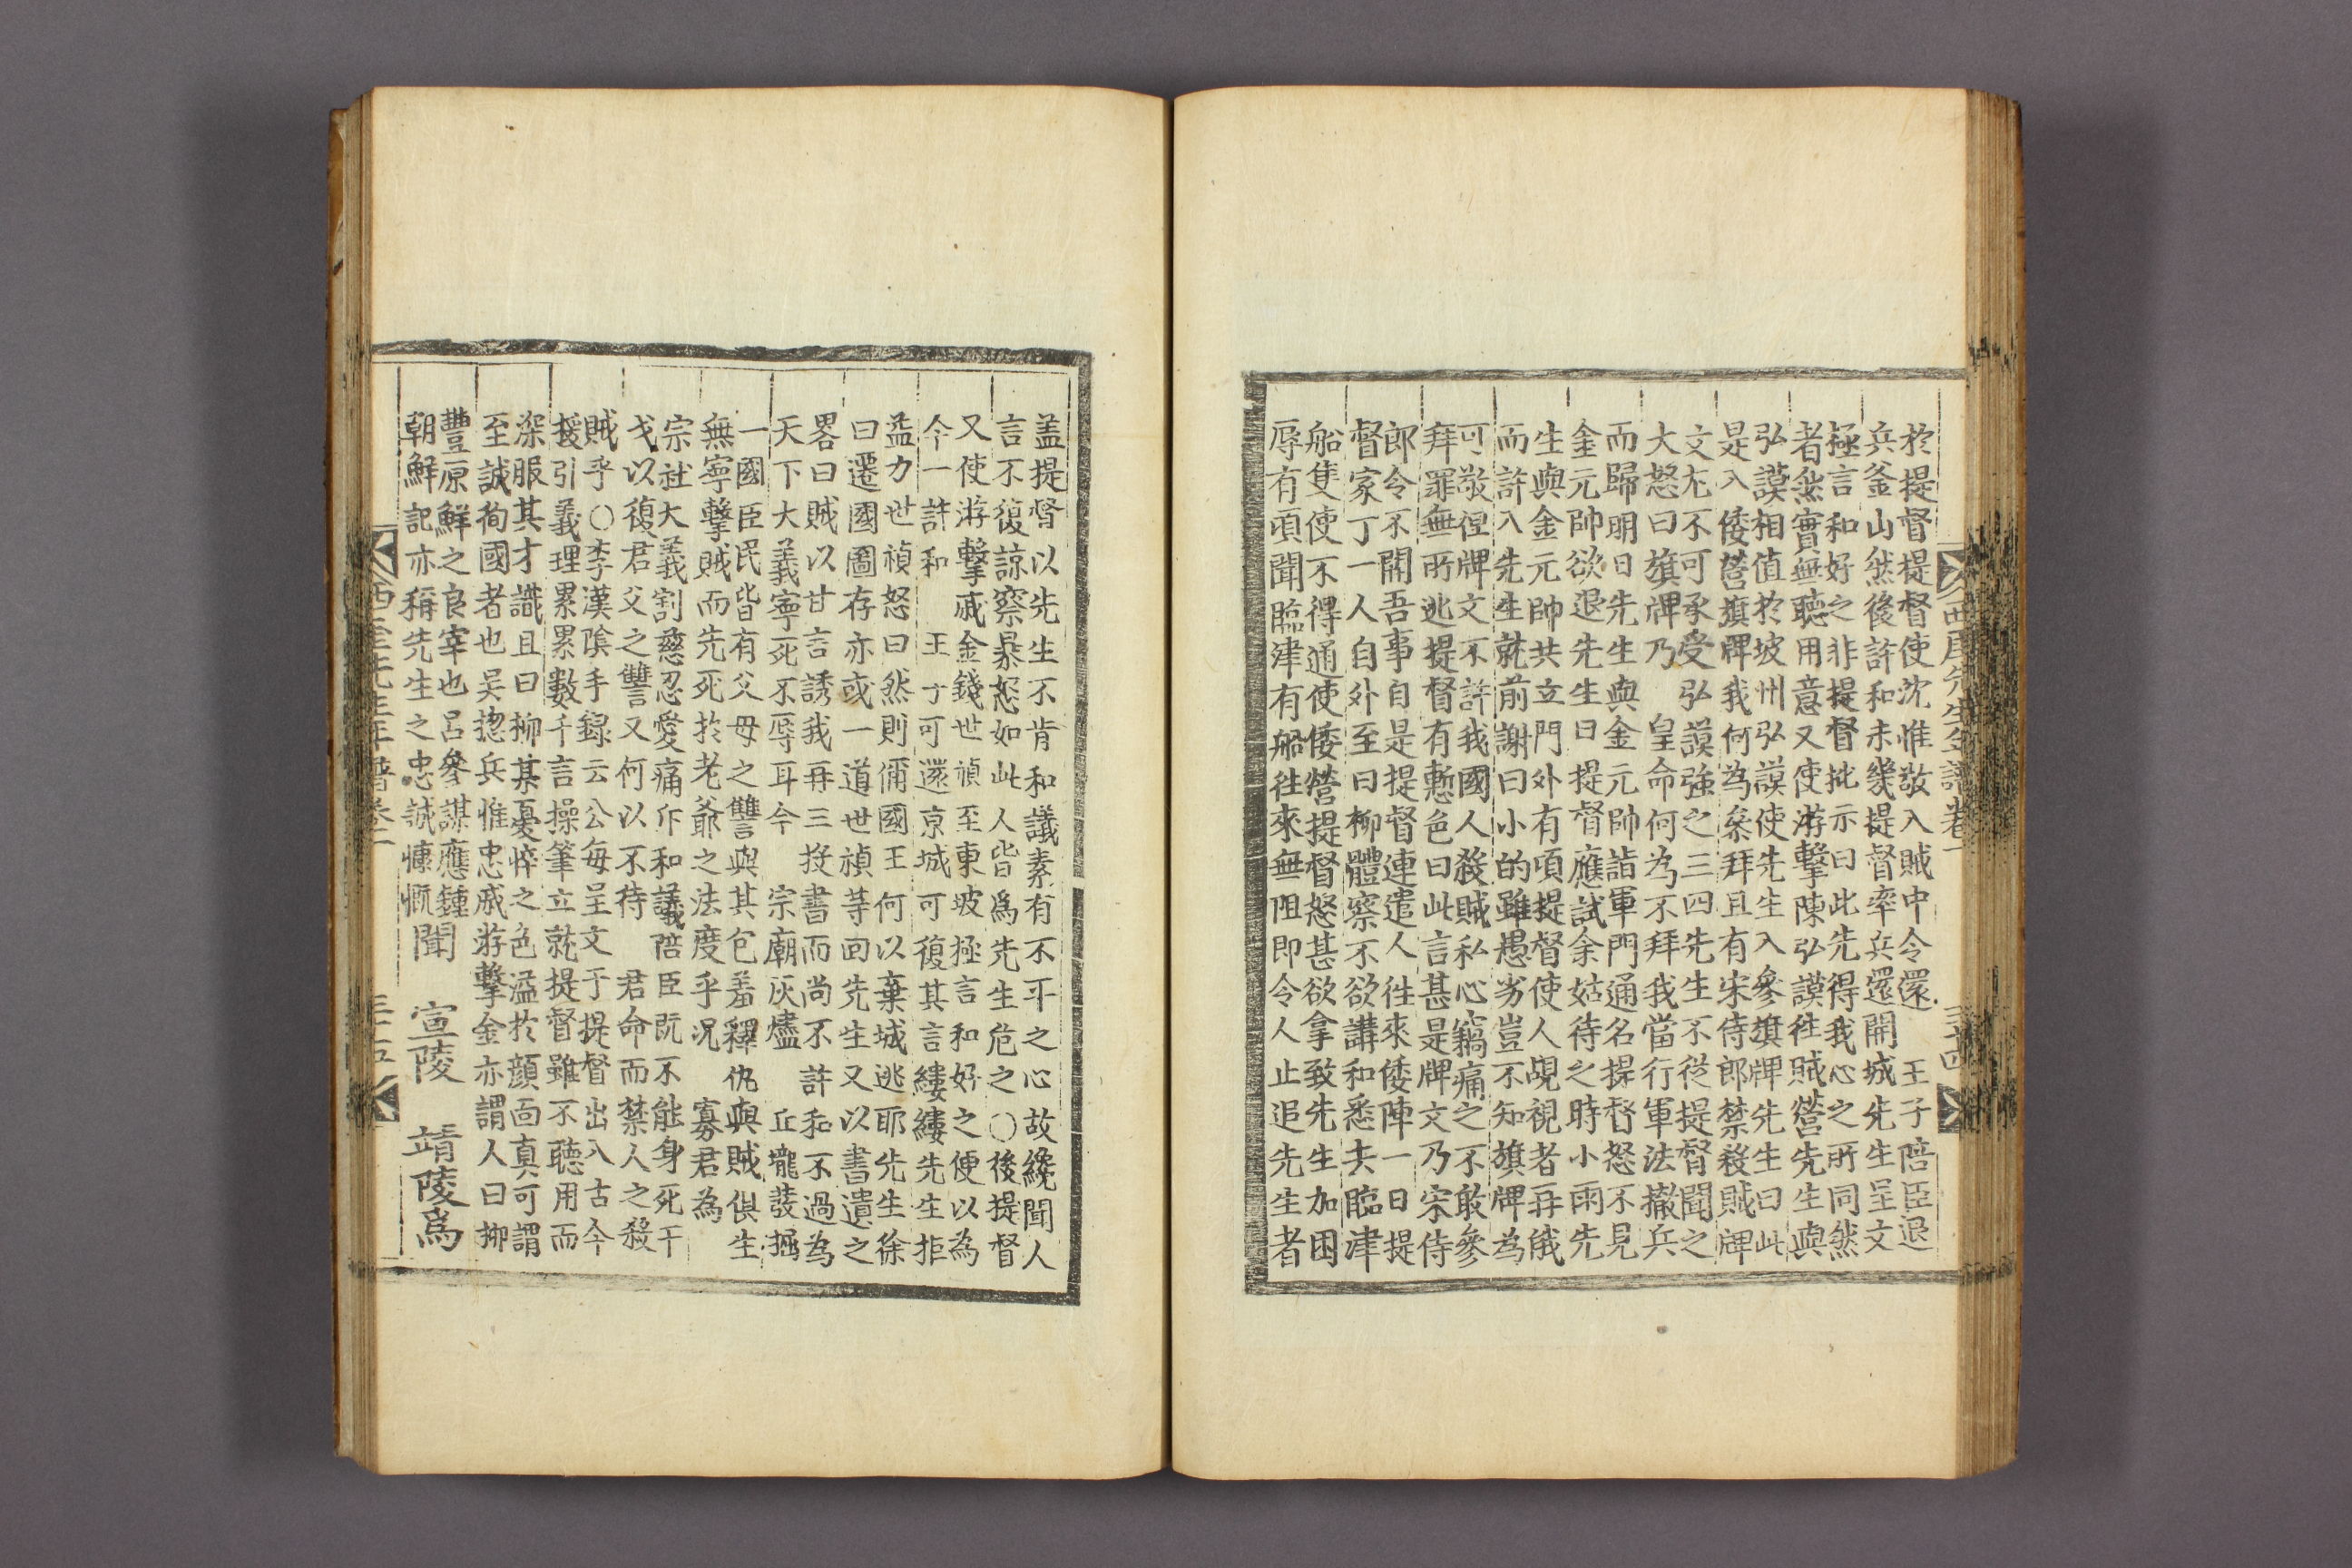 西厓先生年譜卷一
三十四
於提督提督使沈惟敬入賊中令還 王子陪臣退
兵釜山然後許和未幾提督率兵還開城先生呈文
極言和好之非提督批示曰此先得我心之所同然
者然實無聽用意又使游擊陳弘謨徃賊營先生與
弘謨相值於坡州弘謨使先生入參旗牌先生曰此
是入倭營旗牌我何為叅拜且有宋侍郎禁殺賊牌
文尤不可承受弘謨強之三四先生不從提督聞之
大怒曰旗牌乃 皇命何為不拜我當行軍法撤兵
而歸明日先生與金元帥詣軍門通名提督怒不見
金元帥欲退先生曰提督應試余姑待之時小雨先
生與金元帥共立門外有頃提督使人覘視者再俄
而許入先生就前謝曰小的雖愚劣豈不知旗牌為
可敬但牌文不許我國人殺賊私心竊痛之不敢參
拜罪無所逃提督有慙色曰此言甚是牌文乃宋侍
郎令不關吾事自是提督連遣人徃來倭陣一日提
督家丁一人自外至曰柳體察不欲講和悉去臨津
船隻使不得通使倭營提督怒甚欲拿致先生加困
辱有頃聞臨津有船徃來無阻即令人止追先生者
盖提督以先生不肯和議素有不平之心故纔聞人
言不復諒察暴怒如此人皆爲先生危之○後提督
又使游擊戚金錢世禎至東坡極言和好之便以為
今一許和 王子可還京城可復其言縷縷先生拒
益力世禎怒曰然則儞國王何以棄城逃耶先生徐
曰遷國圖存亦或一道世禎等回先生又以書遺之
畧曰賊以甘言誘我再三投書而尚不許和不過為
天下大義寧死不辱耳今 宗廟灰燼 丘壠發掘
一國臣民皆有父母之讐與其包羞釋仇與賊俱生
無寧擊賊而先死於老爺之法度乎况 寡君為
宗社大義割慈忍愛痛斥和議陪臣旣不能身死干
戈以復君父之讐又何以不待 君命而禁人之殺
賊乎○李漢陰手録云公每呈文于提督出入古今
援引義理累累數千言操筆立就提督雖不聽用而
深服其才識且曰柳某憂悴之色溢於顔面真可謂
至誠徇國者也吴揔兵惟忠戚游擊金亦謂人曰柳
豊原鮮之良宰也呂參謀應鍾
朝鮮記亦稱先生之忠誠慷慨聞 宣陵 靖陵爲
西厓先生年譜卷一
三十五